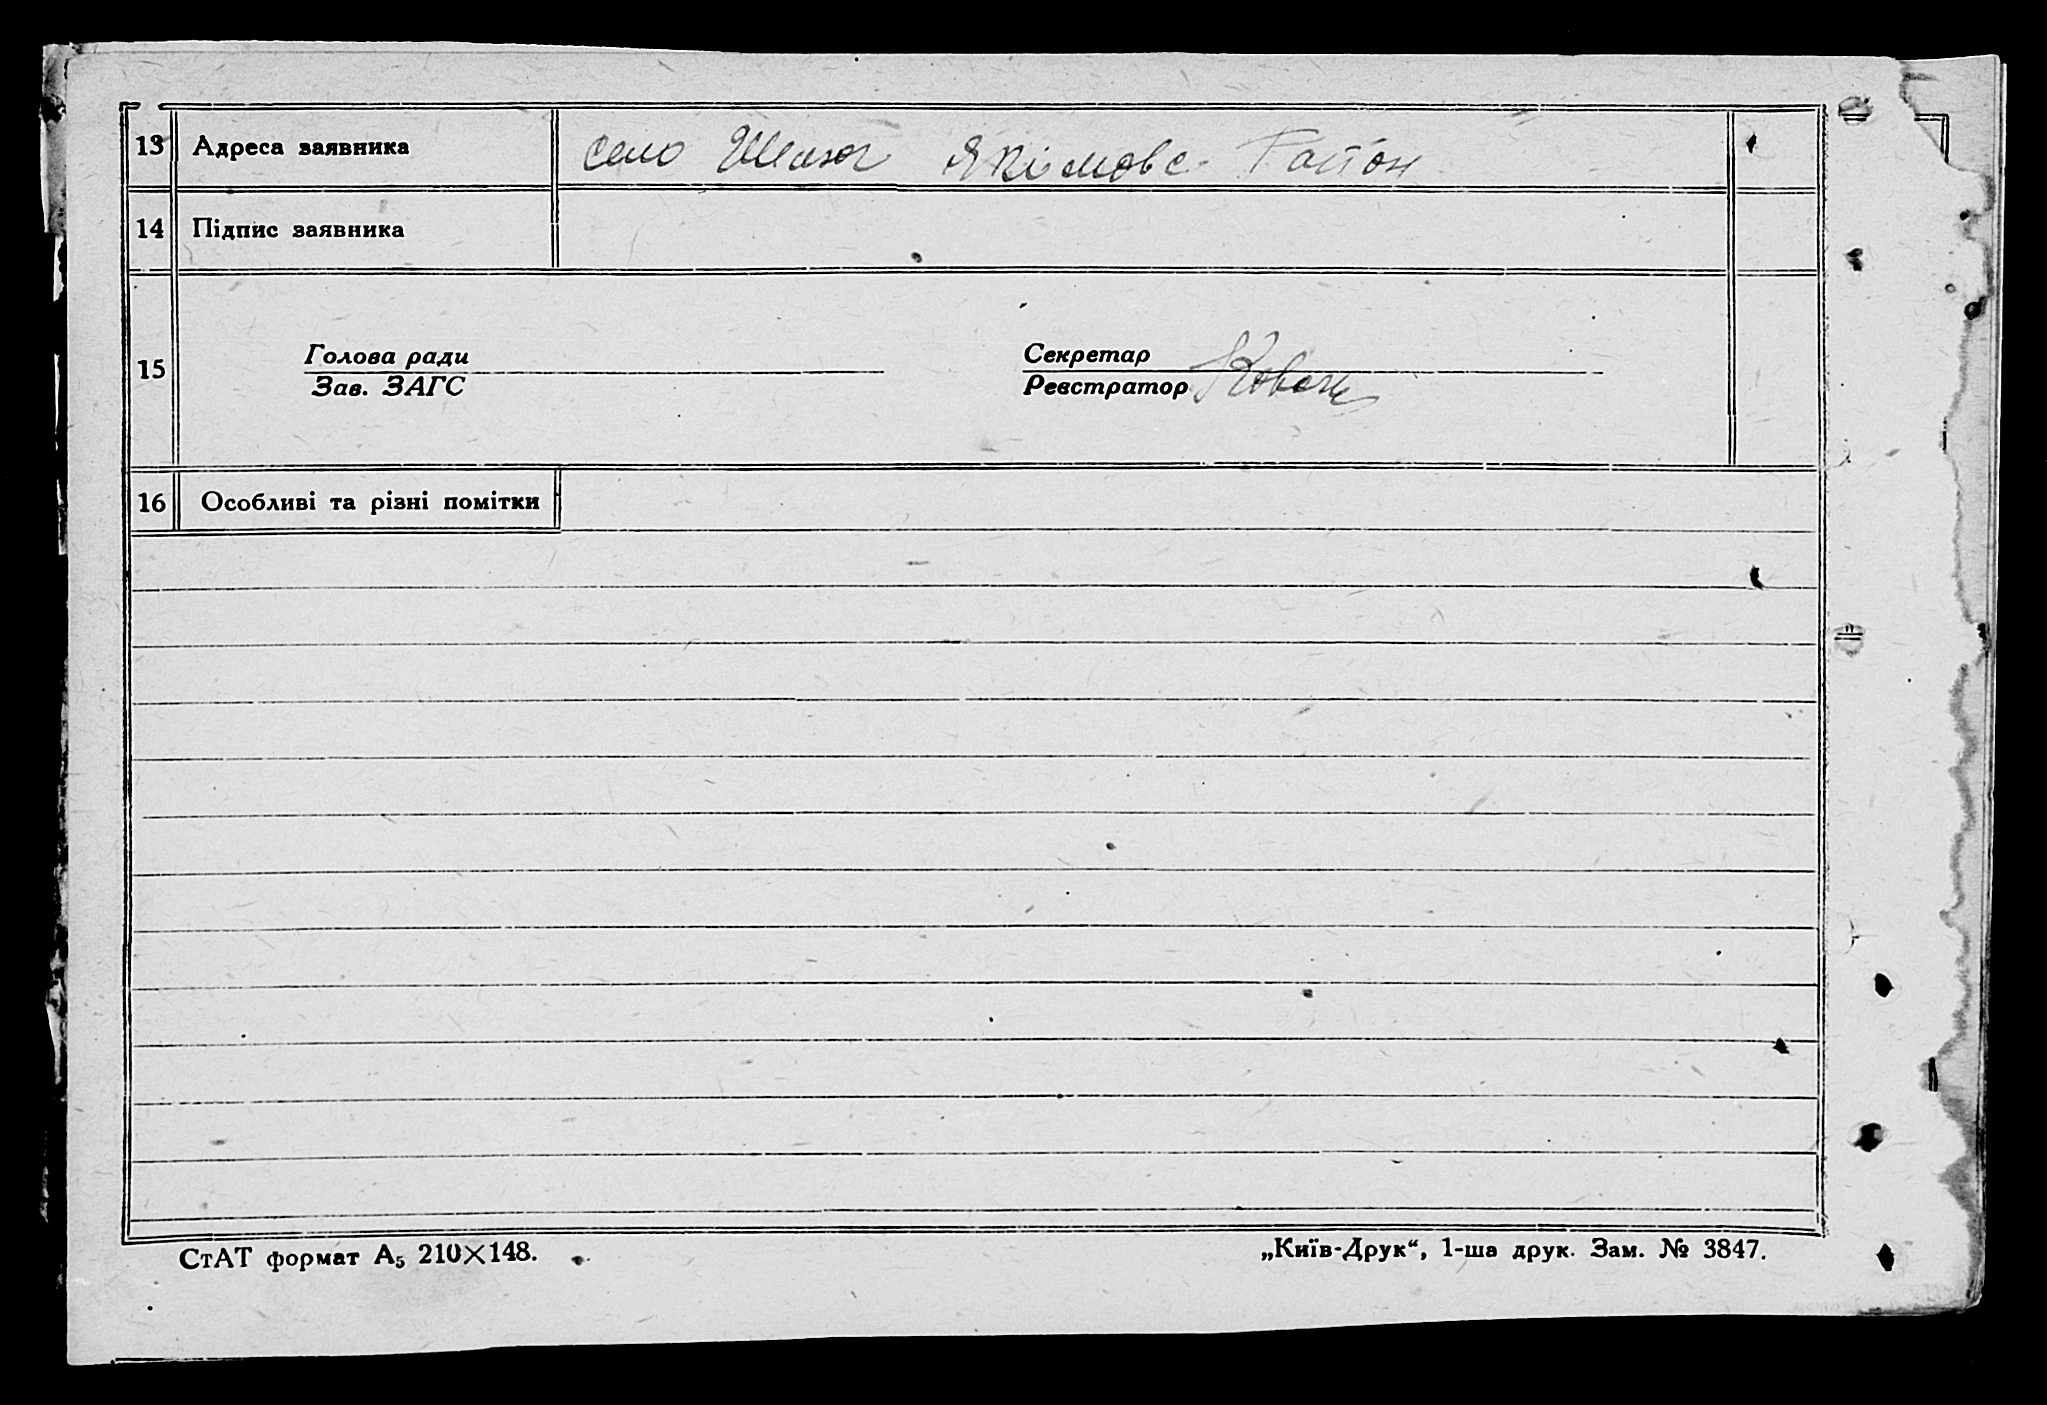 13 Адреса заявника село Шелюг Якімовс. Район
14 Підпис заявника
15 Голова ради Секретар
Зав. ЗАГС Реєстратор
16 Особливі та різні помітки
СтАТ формат А₅ 210×148.
„Київ-Друк“, 1-ша друк. Зам. № 3847.